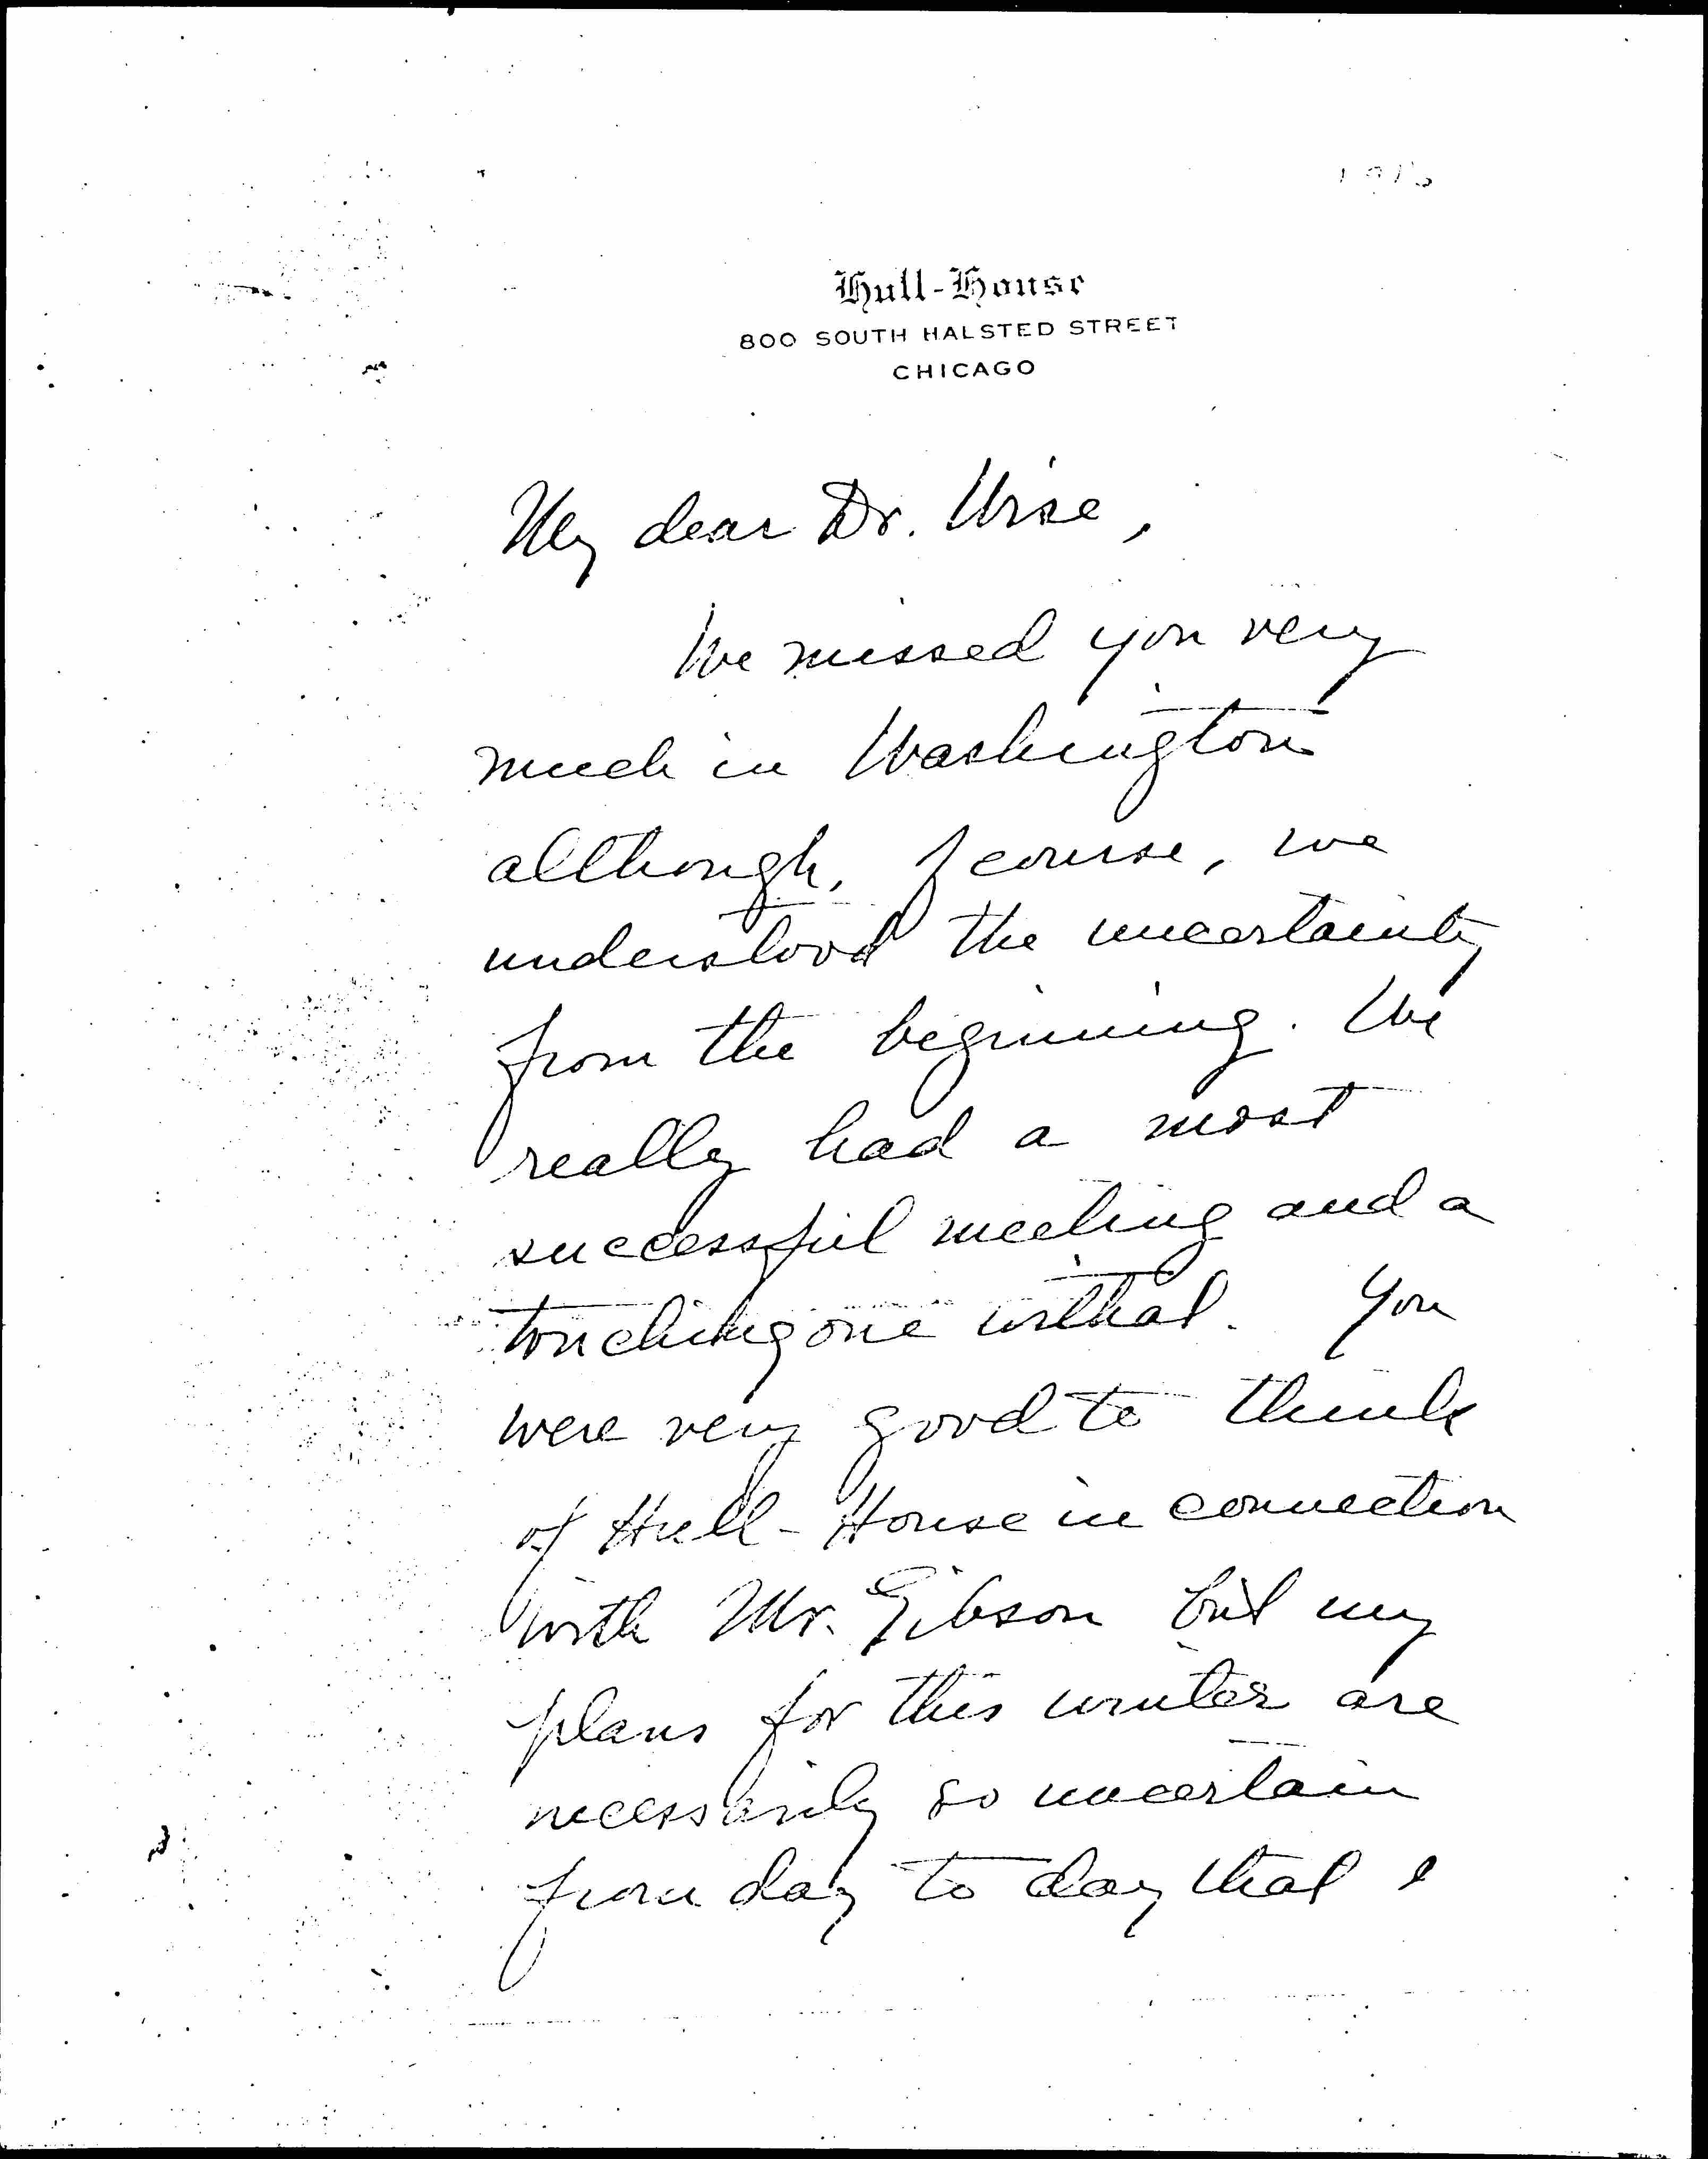 Hull-House
800 SOUTH HALSTED STREET
CHICAGO
My dear Dr. Wise,
We missed you very
much in Washington
although, of course, we
understood the uncertainty
from the beginning. We
really had a most
successful meeting and a
touching one withal. You
were very good to think
of Hull-House in connection
with Mr. Gibson but my
plans for this winter are
necessarily so uncertain
from day to day that I